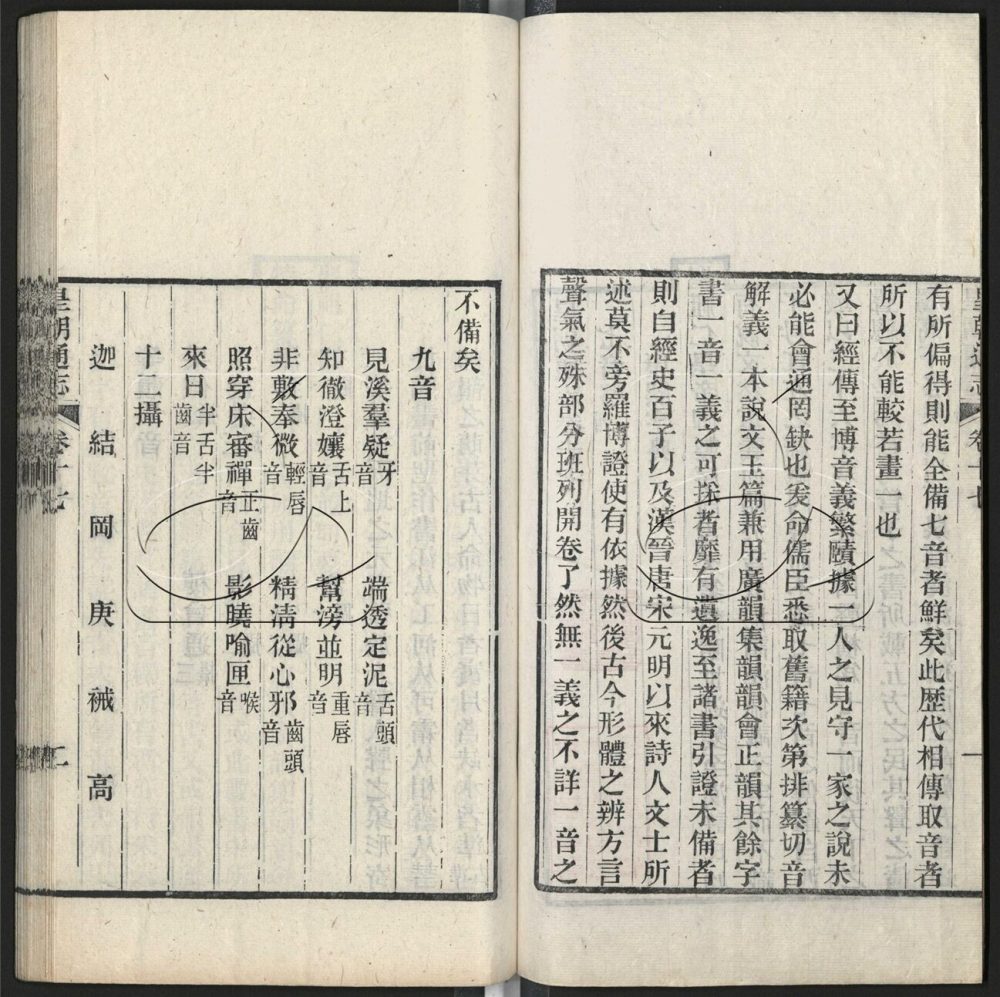 有所偏得則能全備七音者鮮矣此歷代相傳取音者
所以不能較若畫一也
又曰經傳至博音義繁賾據一人之見守一家之說未
必能會通罔缺也爰命儒臣悉取舊籍次第排纂切音
解義一本說文玉篇兼用廣韻集韻韻會正韻其餘字
書一音一義之可採者靡有遺逸至諸書引證未備者
則自經史百子以及漢晉唐宋元明以來詩人文士所
述莫不旁羅博證使有依據然後古今形體之辨方言
聲氣之殊部分班列開卷了然無一義之不詳一音之
不備矣
九音
見溪羣疑牙音 端透定泥舌頭音
知徹澄孃舌上音 幫滂並明重唇音
非敷奉微輕唇音 精淸從心邪齒頭音
照穿床審禪正齒音 影曉喻匣喉音
來日半舌半齒音
十二攝
迦 結 岡 庚 裓 高
皇朝通志 卷十七 二